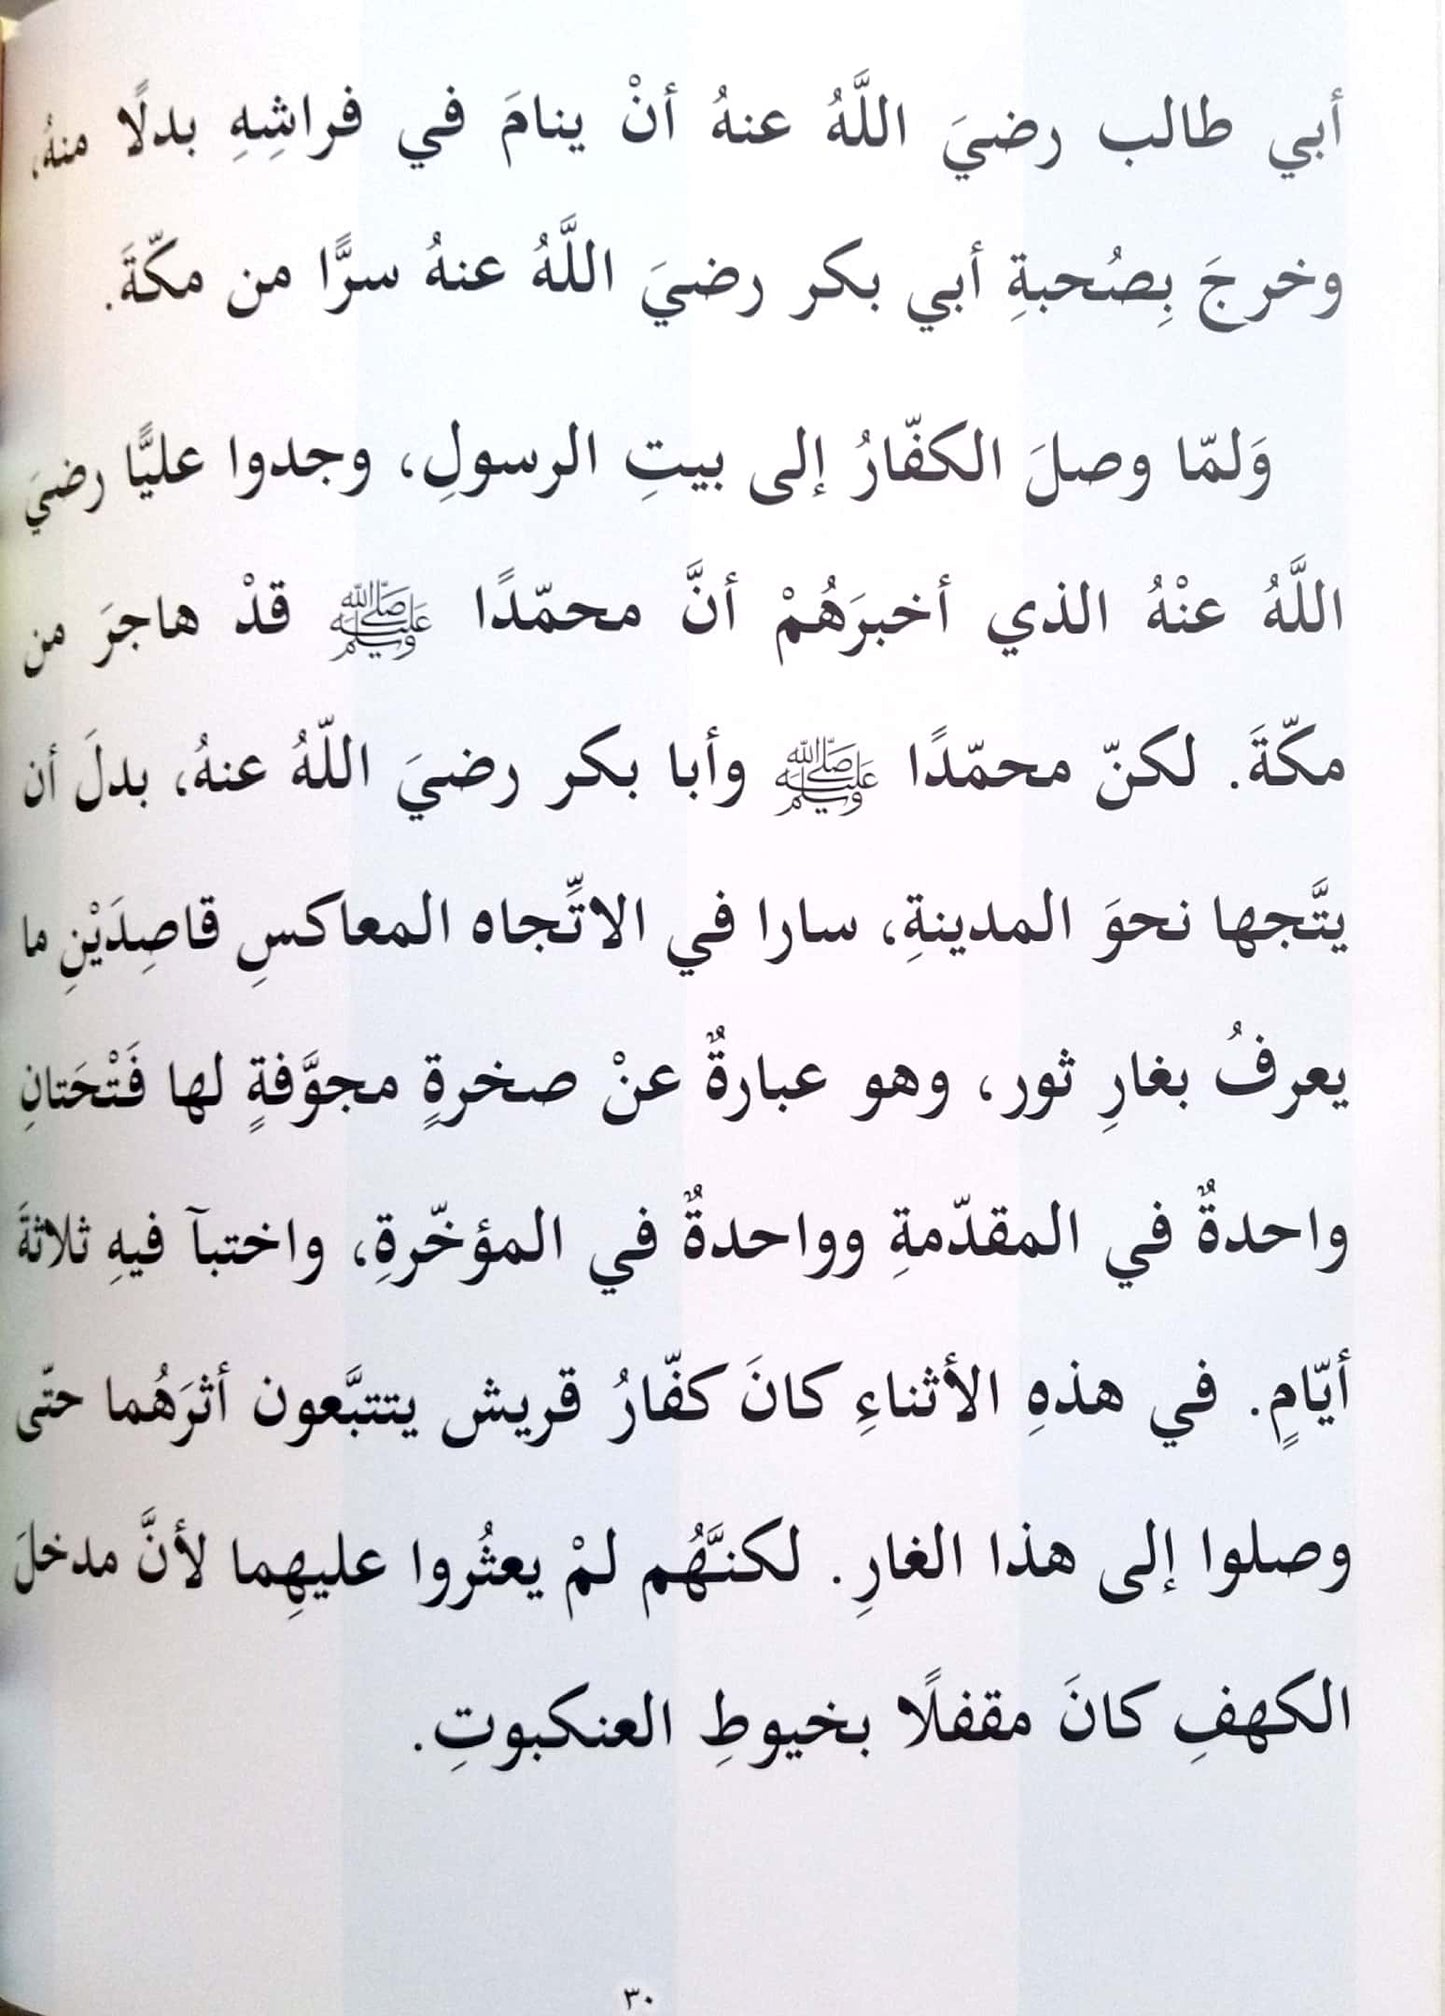 أبي طالب رضيَ اللَّهُ عنهُ أنْ ينامَ في فراشِهِ بدلًا منهُ،
وخرجَ بِصُحبةِ أبي بكر رضيَ اللَّهُ عنهُ سرًّا من مكّةَ.
وَلمّا وصلَ الكفّارُ إلى بيتِ الرسولِ، وجدوا عليًّا رضيَ
اللَّهُ عنْهُ الذي أخبرَهُمْ أنَّ محمّدًا ﷺ قدْ هاجرَ من
مكّةَ. لكنّ محمّدًا ﷺ وأبا بكر رضيَ اللّهُ عنهُ، بدلَ أن
يتَّجها نحوَ المدينةِ، سارا في الاتِّجاه المعاكسِ قاصِدَيْنِ ما
يعرفُ بغارِ ثور، وهو عبارةٌ عنْ صخرةٍ مجوَّفةٍ لها فَتْحَتانِ
واحدةٌ في المقدّمةِ وواحدةٌ في المؤخّرةِ، واختبآ فيهِ ثلاثةَ
أيّامٍ. في هذهِ الأثناءِ كانَ كفّارُ قريش يتتبَّعون أثرَهُما حتّى
وصلوا إلى هذا الغارِ. لكنَّهُم لمْ يعثُروا عليهِما لأنَّ مدخلَ
الكهفِ كانَ مقفلًا بخيوطِ العنكبوتِ.
٣٠